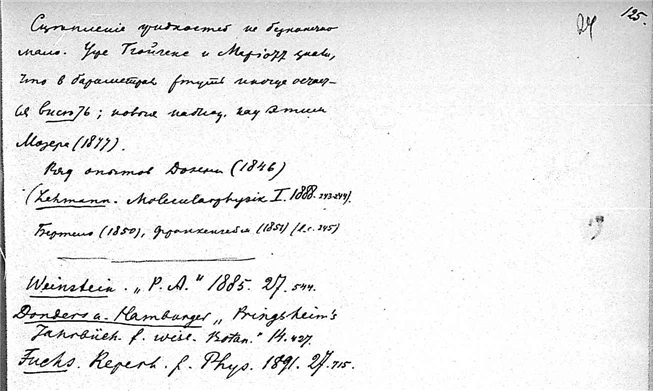 125.
24
Сцѣпленіе жидкостей не безконечно
мало. Уже Гюйгенс и Маріотт знали,
что в барометрах ртуть иногда остает-
ся висѣть; новыя наблюд. над этим
Мозера (1877).
Ряд опытов Донни (1846)
(Lehmann. Molecularphysik I. 1888. 243-244).
Бертело (1850), (1851) (l.c. 245)
Weinstein. „P. A." 1885. 27. 544.
Donders u. Hamburger „Pringsheim's
Jahrbüch. f. wiss. Botan." 14. 427.
Fuchs. Repert. f. Phys. 1891. 27. 715.